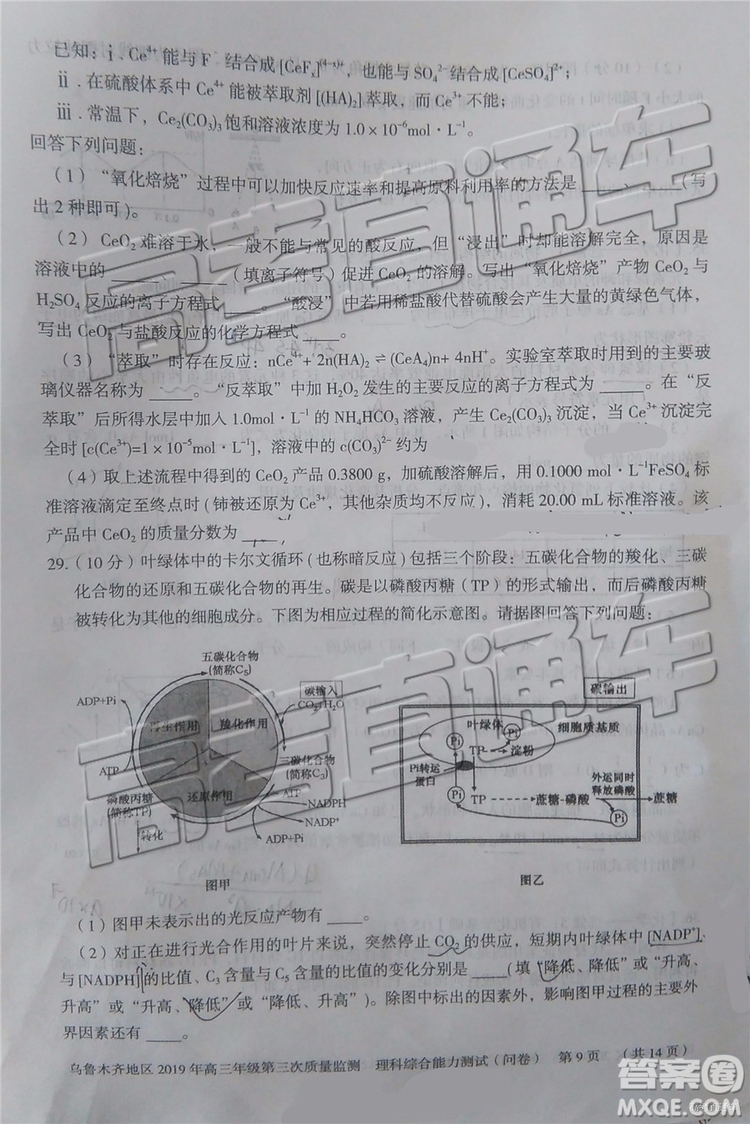 已知：ⅰ. Ce⁴⁺能与 F⁻ 结合成 [CeFₓ]⁽⁴⁻ˣ⁾⁺，也能与 SO₄²⁻结合成 [CeSO₄]²⁺；
ⅱ. 在硫酸体系中 Ce⁴⁺能被萃取剂 [(HA)₂] 萃取，而 Ce³⁺不能；
ⅲ. 常温下，Ce₂(CO₃)₃ 饱和溶液浓度为 1.0 × 10⁻⁶mol · L⁻¹。
回答下列问题：
（1）“氧化焙烧”过程中可以加快反应速率和提高原料利用率的方法是 ____ ____（写
出 2 种即可）。
（2）CeO₂ 难溶于水，一般不能与常见的酸反应，但“浸出”时却能溶解完全，原因是
溶液中的 ____（填离子符号）促进 CeO₂ 的溶解。写出“氧化焙烧”产物 CeO₂ 与
H₂SO₄ 反应的离子方程式 ____。“酸浸”中若用稀盐酸代替硫酸会产生大量的黄绿色气体，
写出 CeO₂ 与盐酸反应的化学方程式 ____。
（3）“萃取”时存在反应：nCe⁴⁺+ 2n(HA)₂ ⇌ (CeA₄)n+ 4nH⁺。实验室萃取时用到的主要玻
璃仪器名称为 ____。“反萃取”中加 H₂O₂ 发生的主要反应的离子方程式为 ____。在“反
萃取”后所得水层中加入 1.0mol · L⁻¹ 的 NH₄HCO₃ 溶液，产生 Ce₂(CO₃)₃ 沉淀，当 Ce³⁺沉淀完
全时 [c(Ce³⁺)=1 × 10⁻⁵mol · L⁻¹]，溶液中 c(CO₃)²⁻ 约为
（4）取上述流程中得到的 CeO₂ 产品 0.3800 g，加硫酸溶解后，用 0.1000 mol · L⁻¹FeSO₄ 标
准溶液滴定至终点时（铈被还原为 Ce³⁺，其他杂质均不反应），消耗 20.00 mL 标准溶液。该
产品中 CeO₂ 的质量分数为 ____
29.（10 分）叶绿体中的卡尔文循环（也称暗反应）包括三个阶段：五碳化合物的羧化、三碳
化合物的还原和五碳化合物的再生。碳是以磷酸丙糖（TP）的形式输出，而后磷酸丙糖
被转化为其他的细胞成分。下图为相应过程的简化示意图。请据图回答下列问题：
五碳化合物
（简称C₅）
ADP+Pi
ATP
再生作用
羧化作用
还原作用
碳输入
CO₂+H₂O
三碳化合物
（简称C₃）
ATP
NADPH
NADP⁺
ADP+Pi
磷酸丙糖
（简称TP）
转化
图甲
碳输出
叶绿体
细胞质基质
Pi
Pi
TP
淀粉
Pi转运
蛋白
Pi
TP
蔗糖-磷酸
外运同时
释放磷酸
蔗糖
Pi
图乙
（1）图甲未表示出的光反应产物有 ____。
（2）对正在进行光合作用的叶片来说，突然停止 CO₂ 的供应，短期内叶绿体中 [NADP⁺]
与 [NADPH] 的比值、C₃ 含量与 C₅ 含量的比值的变化分别是 ____（填“降低、降低”或“升高、
升高”或“升高、降低”或“降低、升高”）。除图中标出的因素外，影响图甲过程的主要外
界因素还有 ____。
乌鲁木齐地区 2019 年高三年级第三次质量监测 理科综合能力测试（问卷） 第 9 页 （共 14 页）
高考直通车
高考直通车
答案圈
MXQE.COM